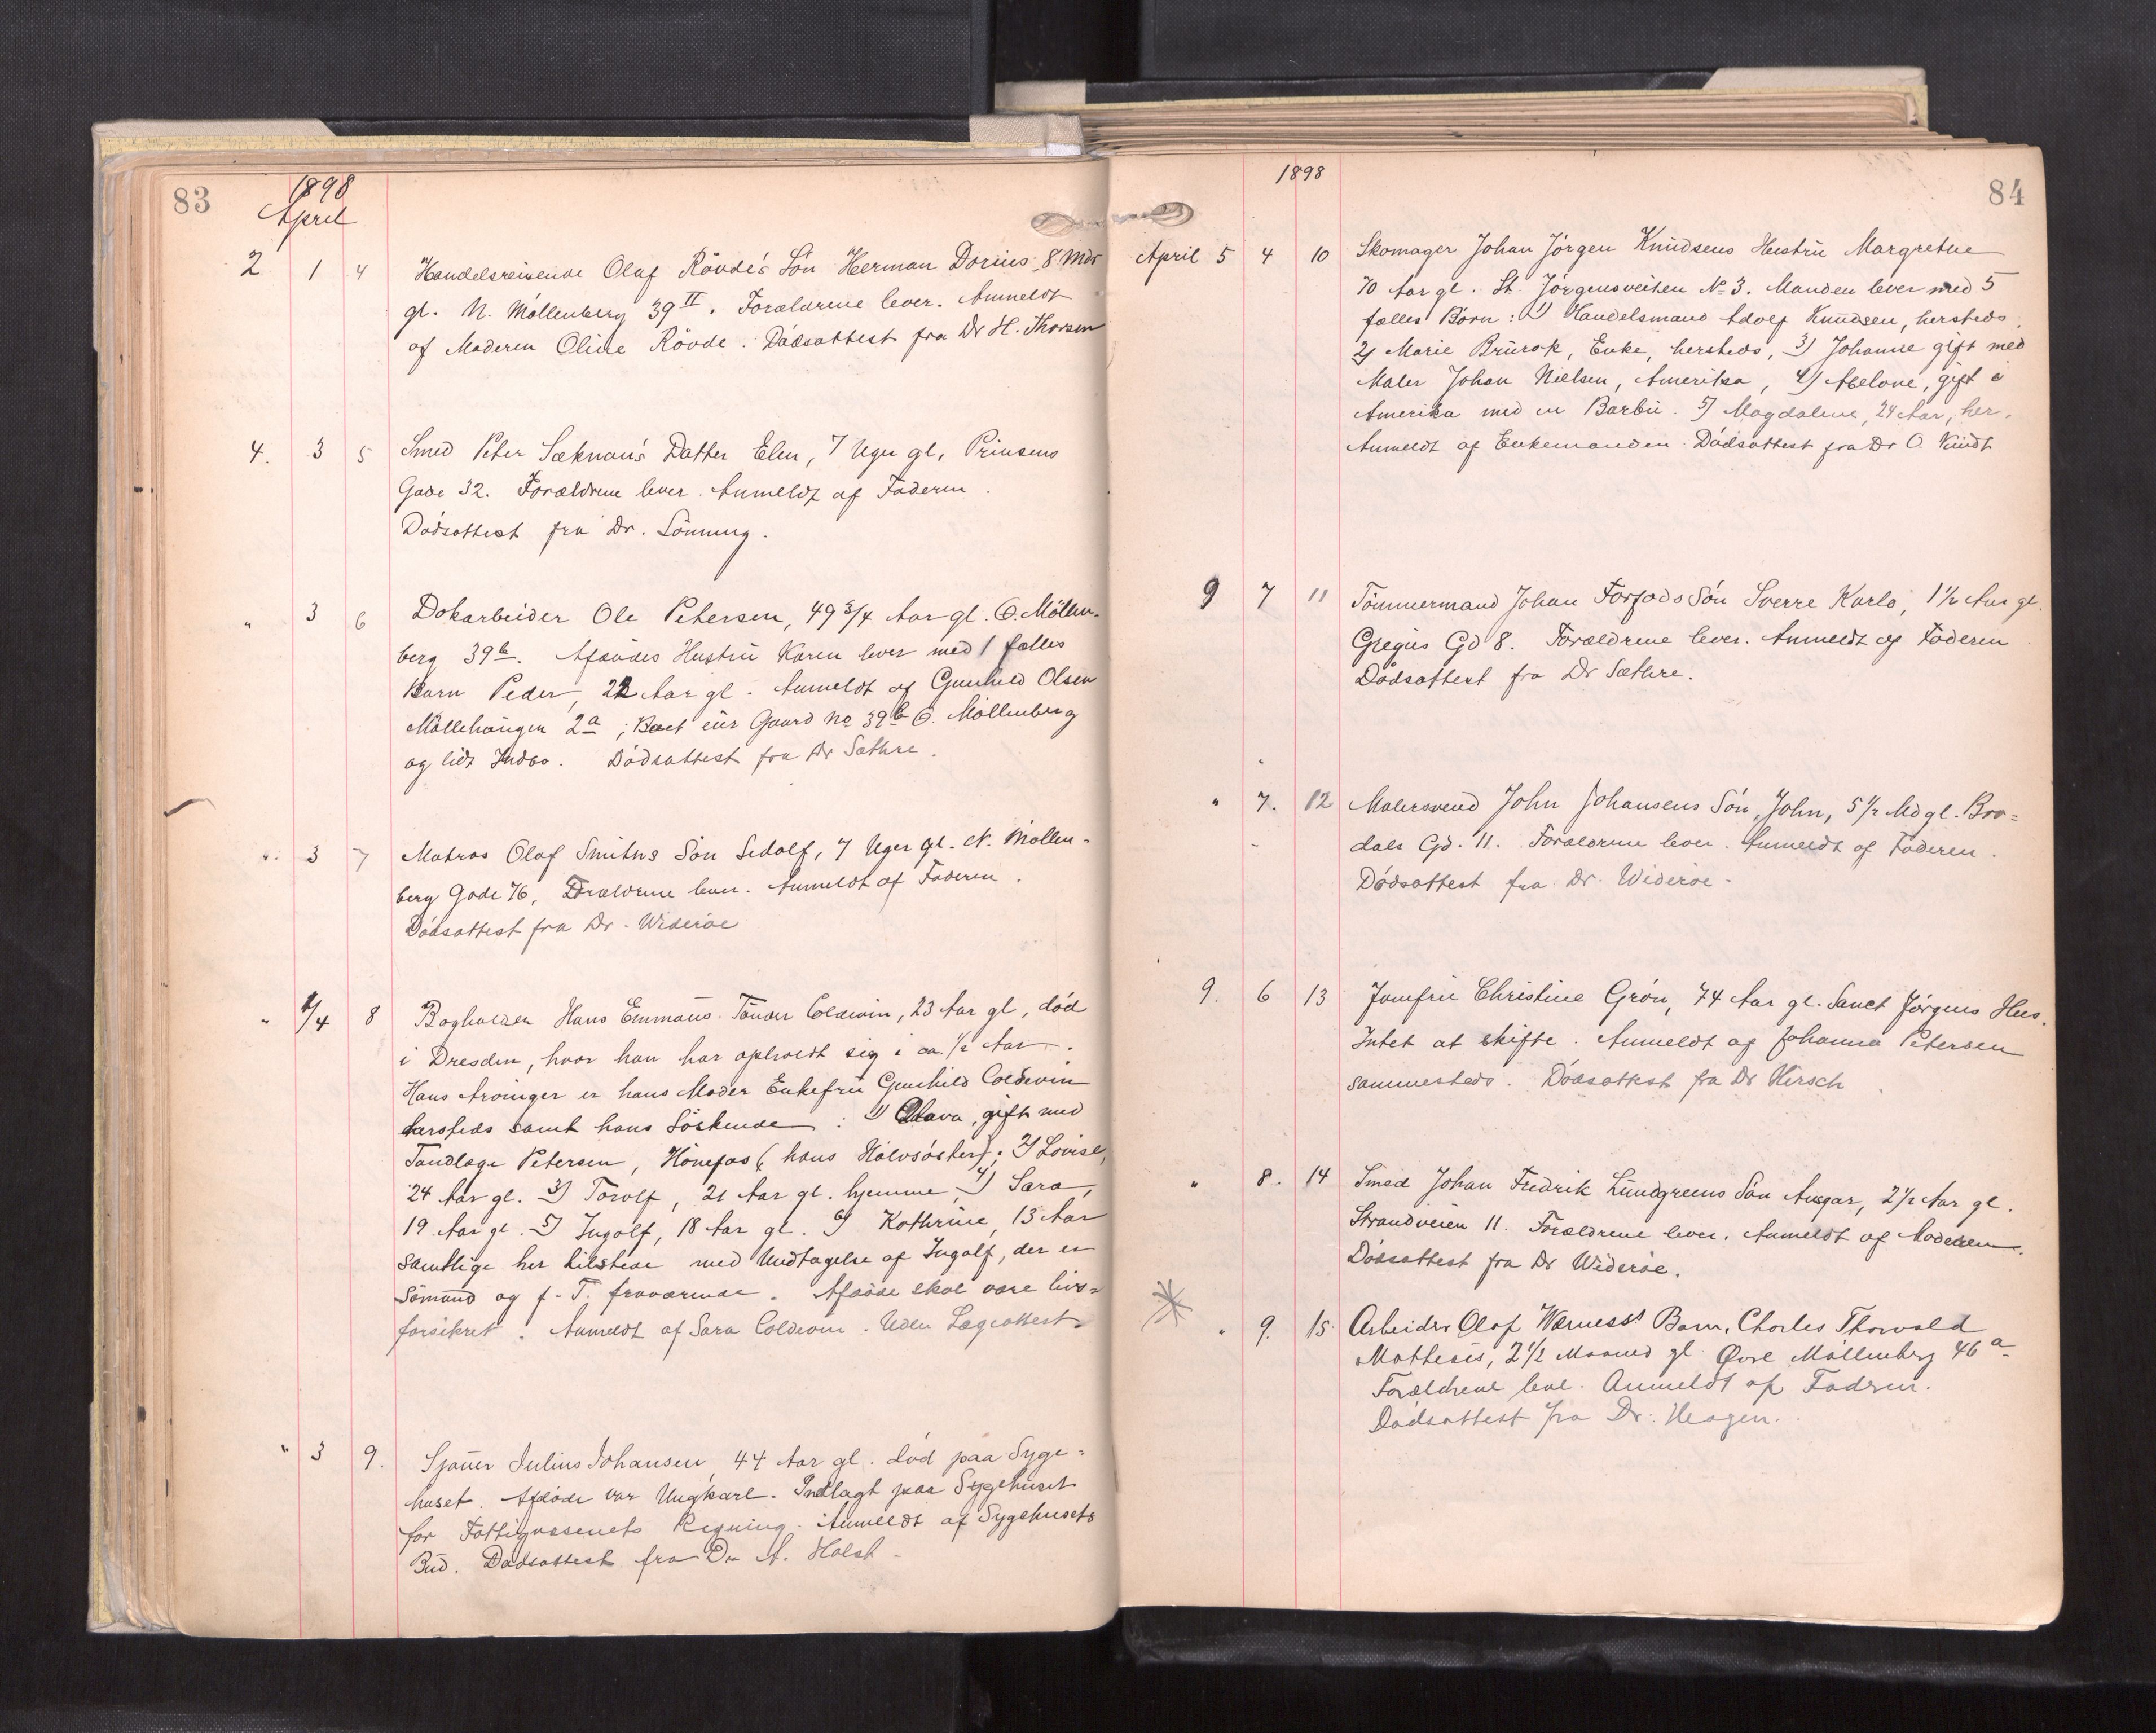 83
1898
April
2 1 4 Handelsreisende Olaf Rövde's Sön Herman Dorius, 8 Mdr
gl. N. Möllenberg 39 II. Forældrene lever. Anmeldt
af Moderen Oline Rövde. Dödsattest fra Dr H. Thorsen
4. 3 5 Smed Peter Sæknan's Datter Elen, 7 Uger gl, Prinsens
Gade 32. Forældrene lever. Anmeldt af Faderen.
Dödsattest fra Dr. Lönning.
" 3 6 Dokarbeider Ole Petersen, 49 3/4 Aar gl. Ö. Möllen-
berg 39 b. Afdödes Hustru Karen lever med 1 fælles
Barn Peder, 22 Aar gl. Anmeldt af Gunhild Olsen
Möllehaugen 2 a; Boet eier Gaard No 39 b Ö. Möllenberg
og lidt Indbo. Dödsattest fra Dr Sæthre.
" 3 7 Matros Olaf Smiths Sön Sedolf, 7 Uger gl. N. Möllen-
berg Gade 76, Forældrene lever. Anmeldt af Faderen.
Dödsattest fra Dr. Wideröe
" 1/4 8 Bogholder Hans Emmaus Tönder Coldevin, 23 Aar gl, död
i Dresden, hvor han har opholdt sig i ca. 1/2 Aar.
Hans Arvinger er hans Moder Enkefru Gunhild Coldevin
hersteds samt hans Söskende : 1) Olava, gift med
Tandlæge Petersen, Hönefos (hans Halvsöster); 2) Lovise,
24 Aar gl. 3) Torolf, 21 Aar gl. hjemme, 4) Sara,
19 Aar gl. 5) Ingolf, 18 Aar gl. 6) Kathrine, 13 Aar
samtlige her tilstede med Undtagelse af Ingolf, der er
Sömand og f. T. fraværende. Afdöde skal være livs-
forsikret. Anmeldt af Sara Coldevin. Uden Lægeattest.
" 3 9. Sjauer Julius Johansen, 44 Aar gl. död paa Syge-
huset. Afdöde var Ungkarl. Indlagt paa Sygehuset
for Fattigvæsenets Regning. Anmeldt af Sygehusets
Bud. Dödsattest fra Dr A. Holst.
1898
84
April 5 4 10 Skomager Johan Jörgen Knudsens Hustru Margrethe
70 Aar gl. St. Jörgensveiten No 3. Manden lever med 5
fælles Börn: 1) Handelsmand Adolf Knudsen, hersteds,
2) Marie Brurok, Enke, hersteds, 3) Johanne gift med
Maler Johan Nielsen, Amerika, 4) Abelone, gift i
Amerika med en Barbér. 5) Magdalene, 24 Aar, her.
Anmeldt af Enkemanden. Dödsattest fra Dr O. Kindt
9 7 11 Tömmermand Johan Forfods Sön Sverre Karlo, 1 1/2 Aar gl.
Gregus Gd 8. Forældrene lever. Anmeldt af Faderen
Dödsattest fra Dr Sæthre.
" 7. 12 Malersvend John Johansens Sön, John, 5 1/2 Md gl. Bro=
dals Gd. 11. Forældrene lever. Anmeldt af Faderen.
Dödsattest fra Dr. Wideröe.
9. 6 13 Jomfru Christine Grön, 74 Aar gl. Sanct Jörgens Hus.
Intet at skifte. Anmeldt af Johanna Petersen
sammesteds. Dödsattest fra Dr Hirsch
" 8. 14 Smed Johan Fredrik Lundgreens Sön Ansgar, 2 1/2 Aar gl.
Strandveien 11. Forældrene lever. Anmeldt af Moderen.
Dödsattest fra Dr Wideröe.
" 9. 15. Arbeider Olaf Wærness' Barn, Charles Thorvald
Matheus, 2 1/2 Maaned gl. Øvre Möllenberg 46 a
Forældrene leve. Anmeldt af Faderen.
Dödsattest fra Dr. Hagen.